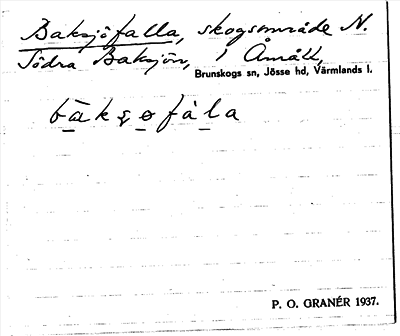 Baksjöfalla, skogsområde N.
Södra Baksjön, i Åmått,
Brunskogs sn, Jösse hd, Värmlands l.
bàksofàla
P. O. GRANÉR 1937.